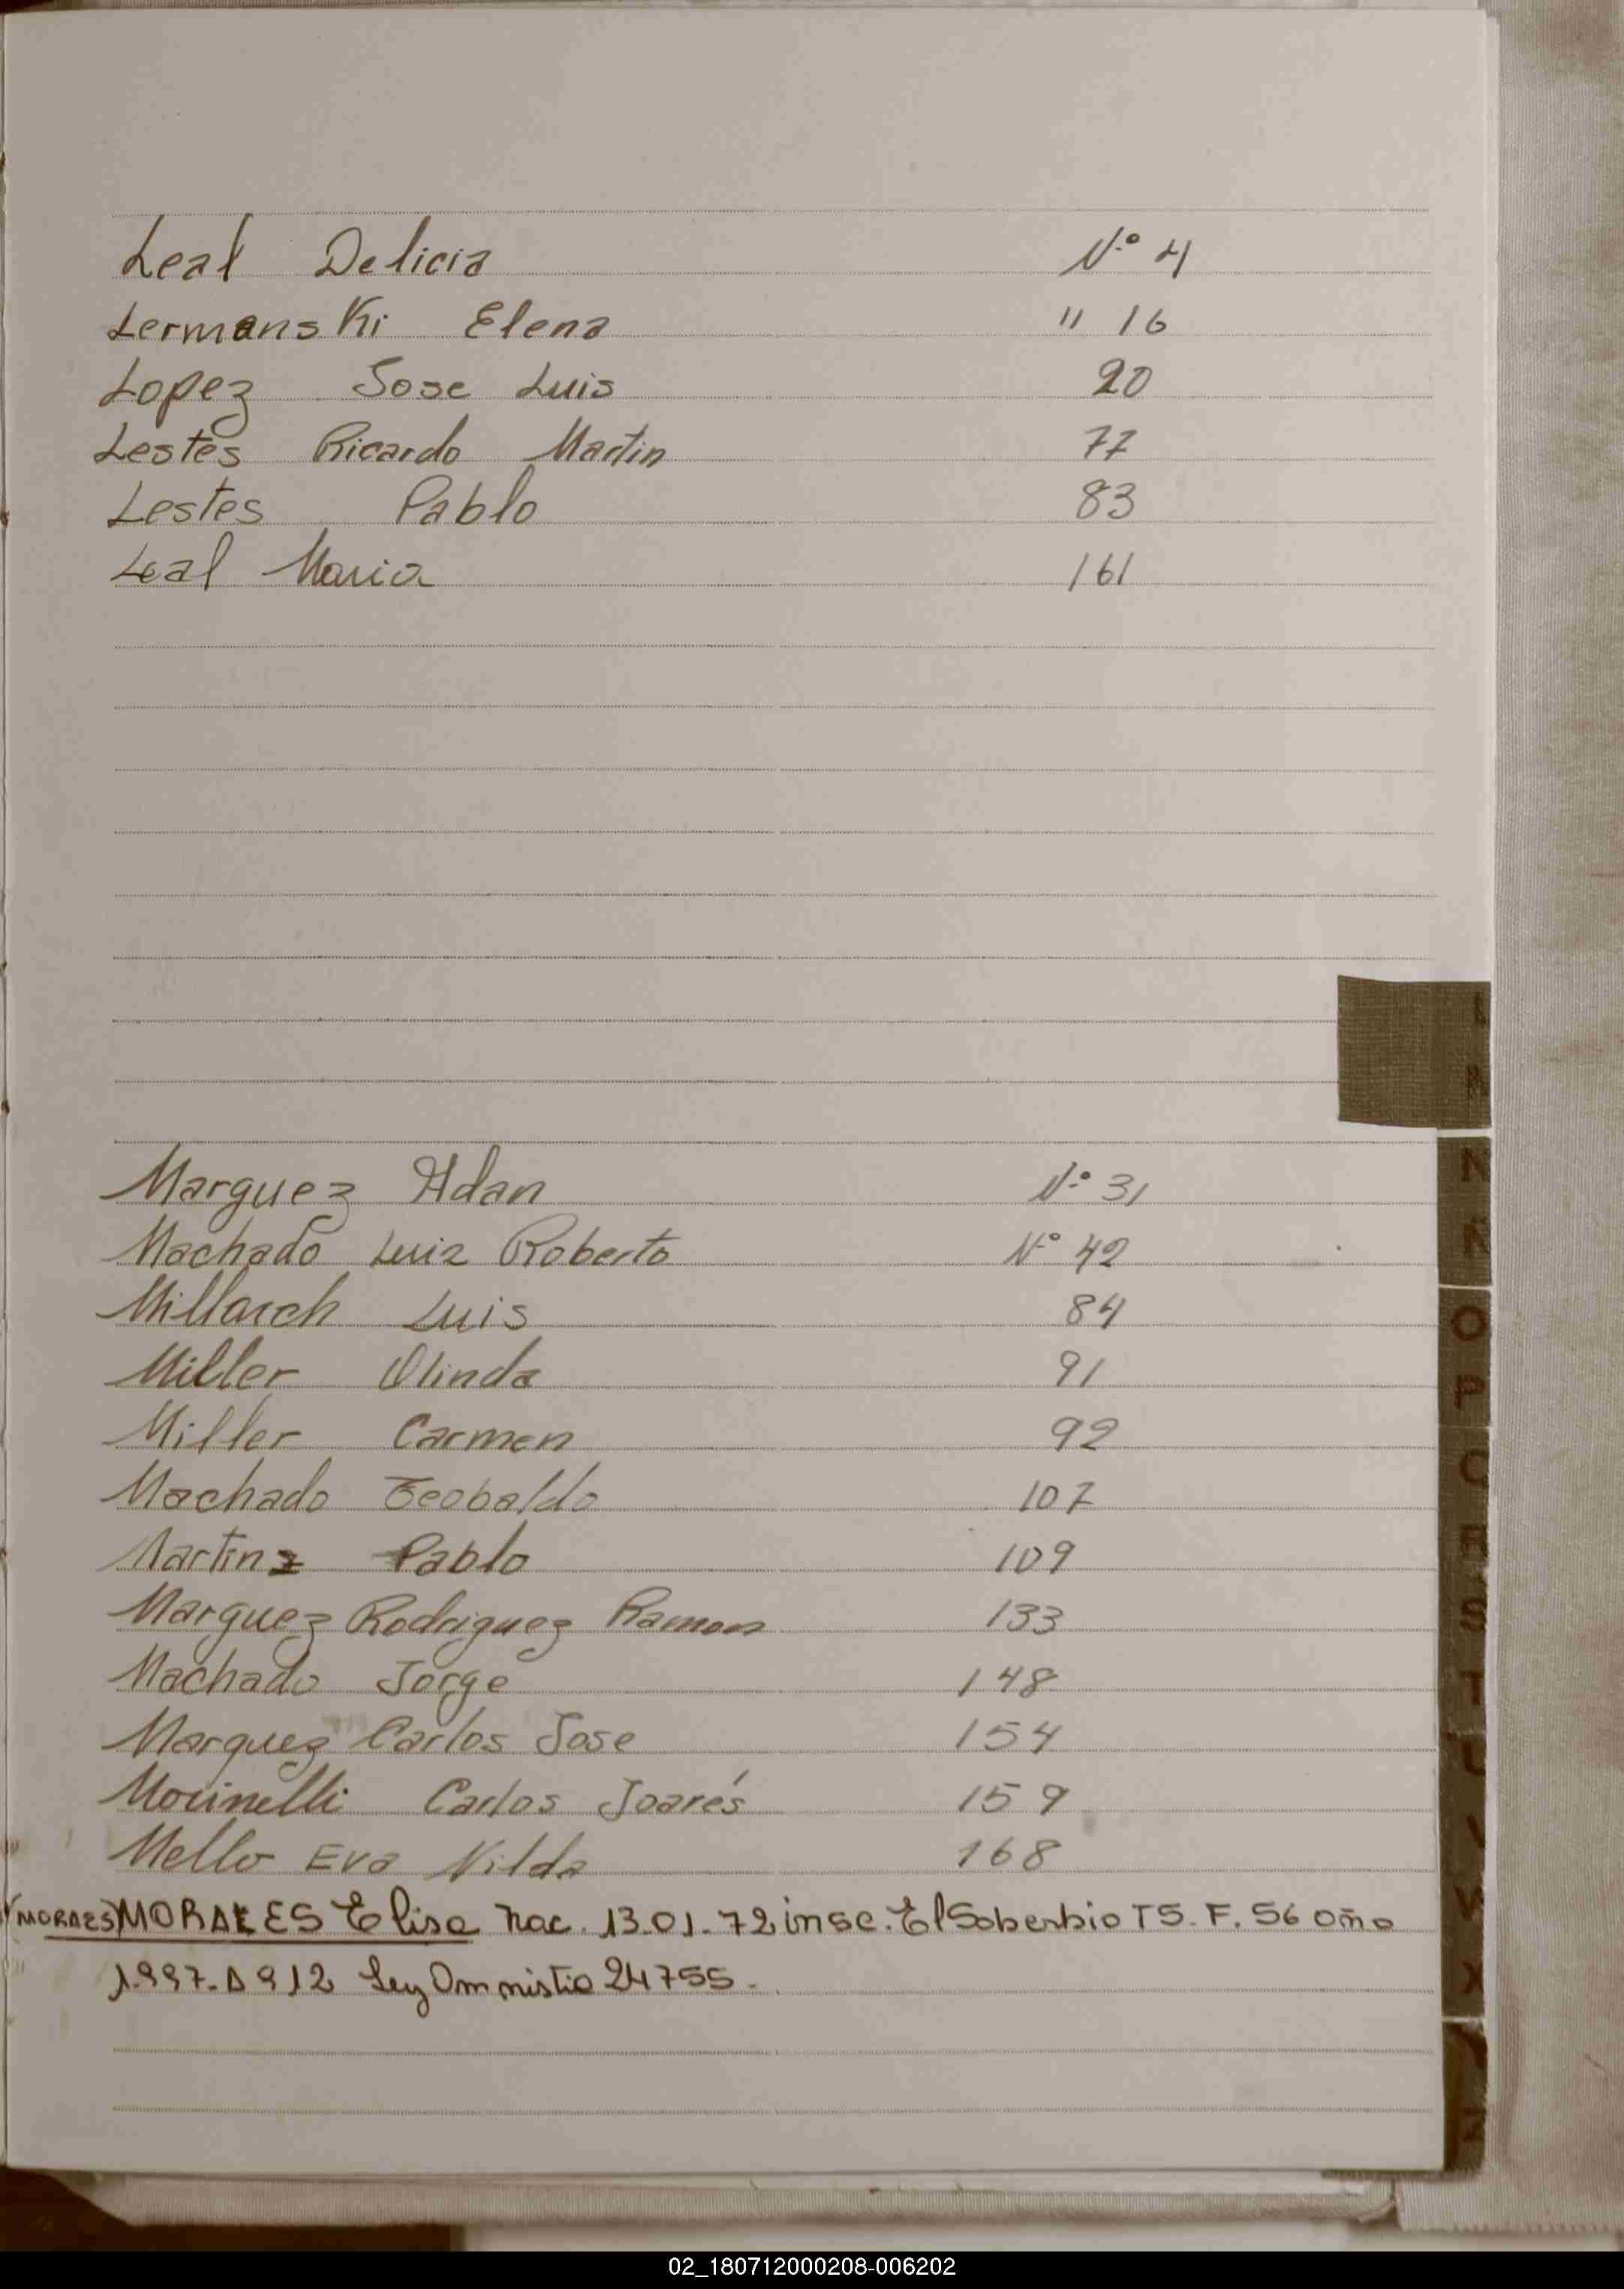 Leal Delicia N.º 4
Lermanski Elena " 16
Lopez Jose Luis 20
Lestes Ricardo Martin 77
Lestes Pablo 83
Leal Maria 161
L
M
Marguez Adan N.º 31
N
Machado Luiz Roberto Nº 42
Ñ
Millarch Luis 84
O
Miller Olinda 91
P
Miller Carmen 92
Q
Machado Teobaldo 107
Martinz Pablo 109
R
Marguez Rodriguez Ramon 133
S
Machado Jorge 148
T
Marquez Carlos Jose 154
U
Morinelli Carlos Joarés 159
V
Mello Eva Nilda 168
(MORAES) MORALES Elisa nac. 13-01-72 insc. El Soberbio T5. F. 56 año
W
1.997-A 912 Ley Omnistia 24755.
X
02_180712000208-006202